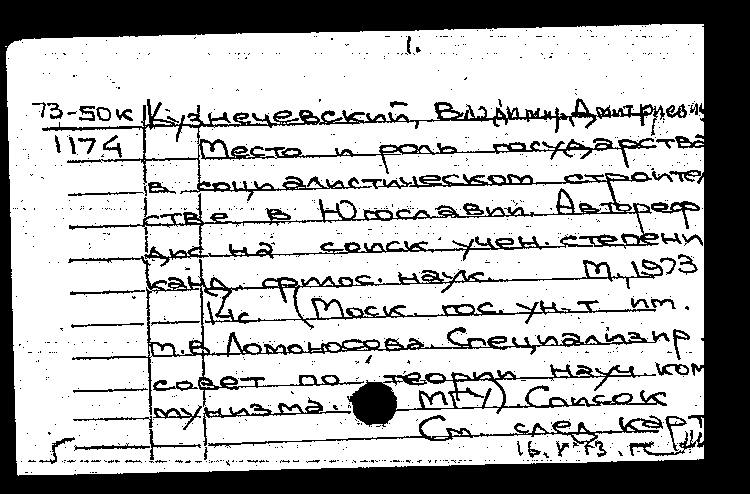 1.
73-50к Кузнечевский, Владимир Дмитриевич
1174 Место и роль государства
в социалистическом строитель
стве в Югославии. Автореф.
дис. на соиск. учен. степени
канд. филос. наук. М., 1973
14с (Моск. гос. ун-т им.
М.В. Ломоносова. Специализир.
совет по теории науч. ком
мунизма. МГУ) Список
См. след. карт
16.V 73.